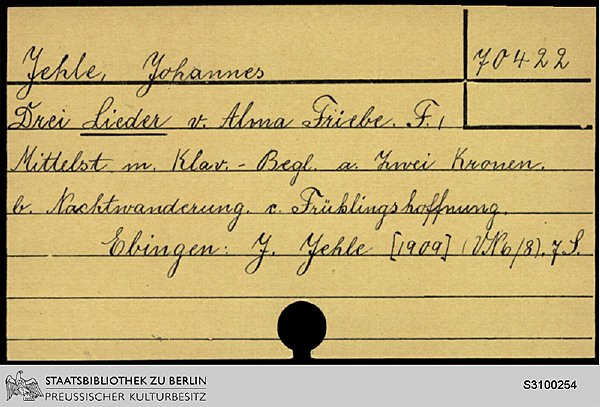 Jehle, Johannes
70422
Drei Lieder v. Alma Friebe. F. 1
Mittelst. m. Klav.-Begl. a. Zwei Kronen.
b. Nachtwanderung. c. Frühlingshoffnung.
Ebingen: J. Jehle [1909] (V.N. 6/8). 7 S.
STAATSBIBLIOTHEK ZU BERLIN
PREUSSISCHER KULTURBESITZ
S3100254